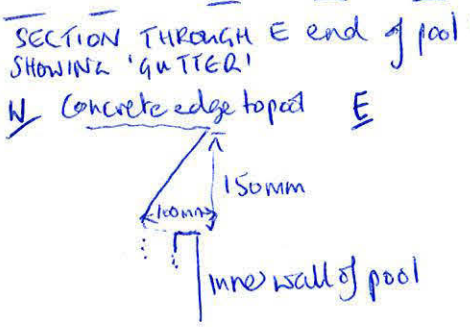 SECTION THROUGH E end of pool
SHOWING 'GUTTER'
W Concrete edge to pool E
150mm
100mm
Inner wall of pool